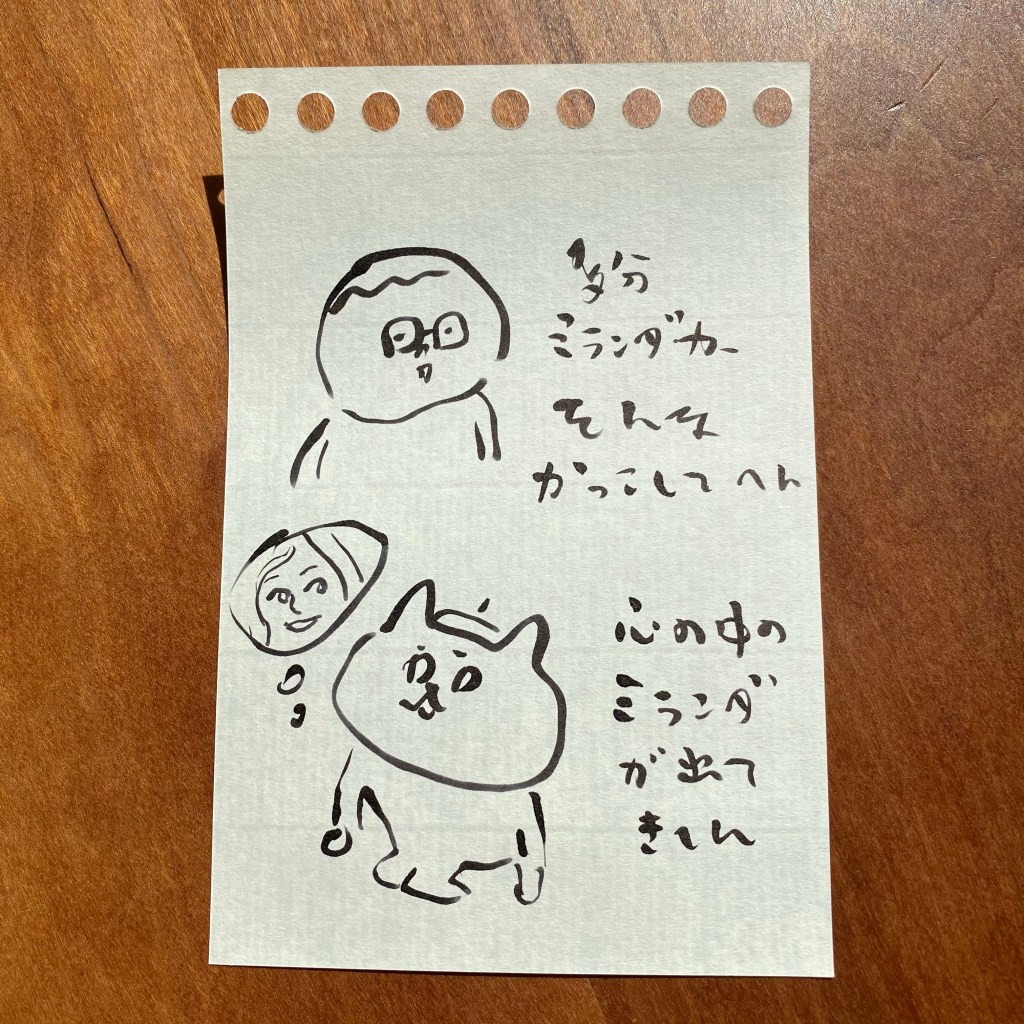 多分
ミランダカー
そんな
かっこしてへん
心の中の
ミランダ
が出て
きとん